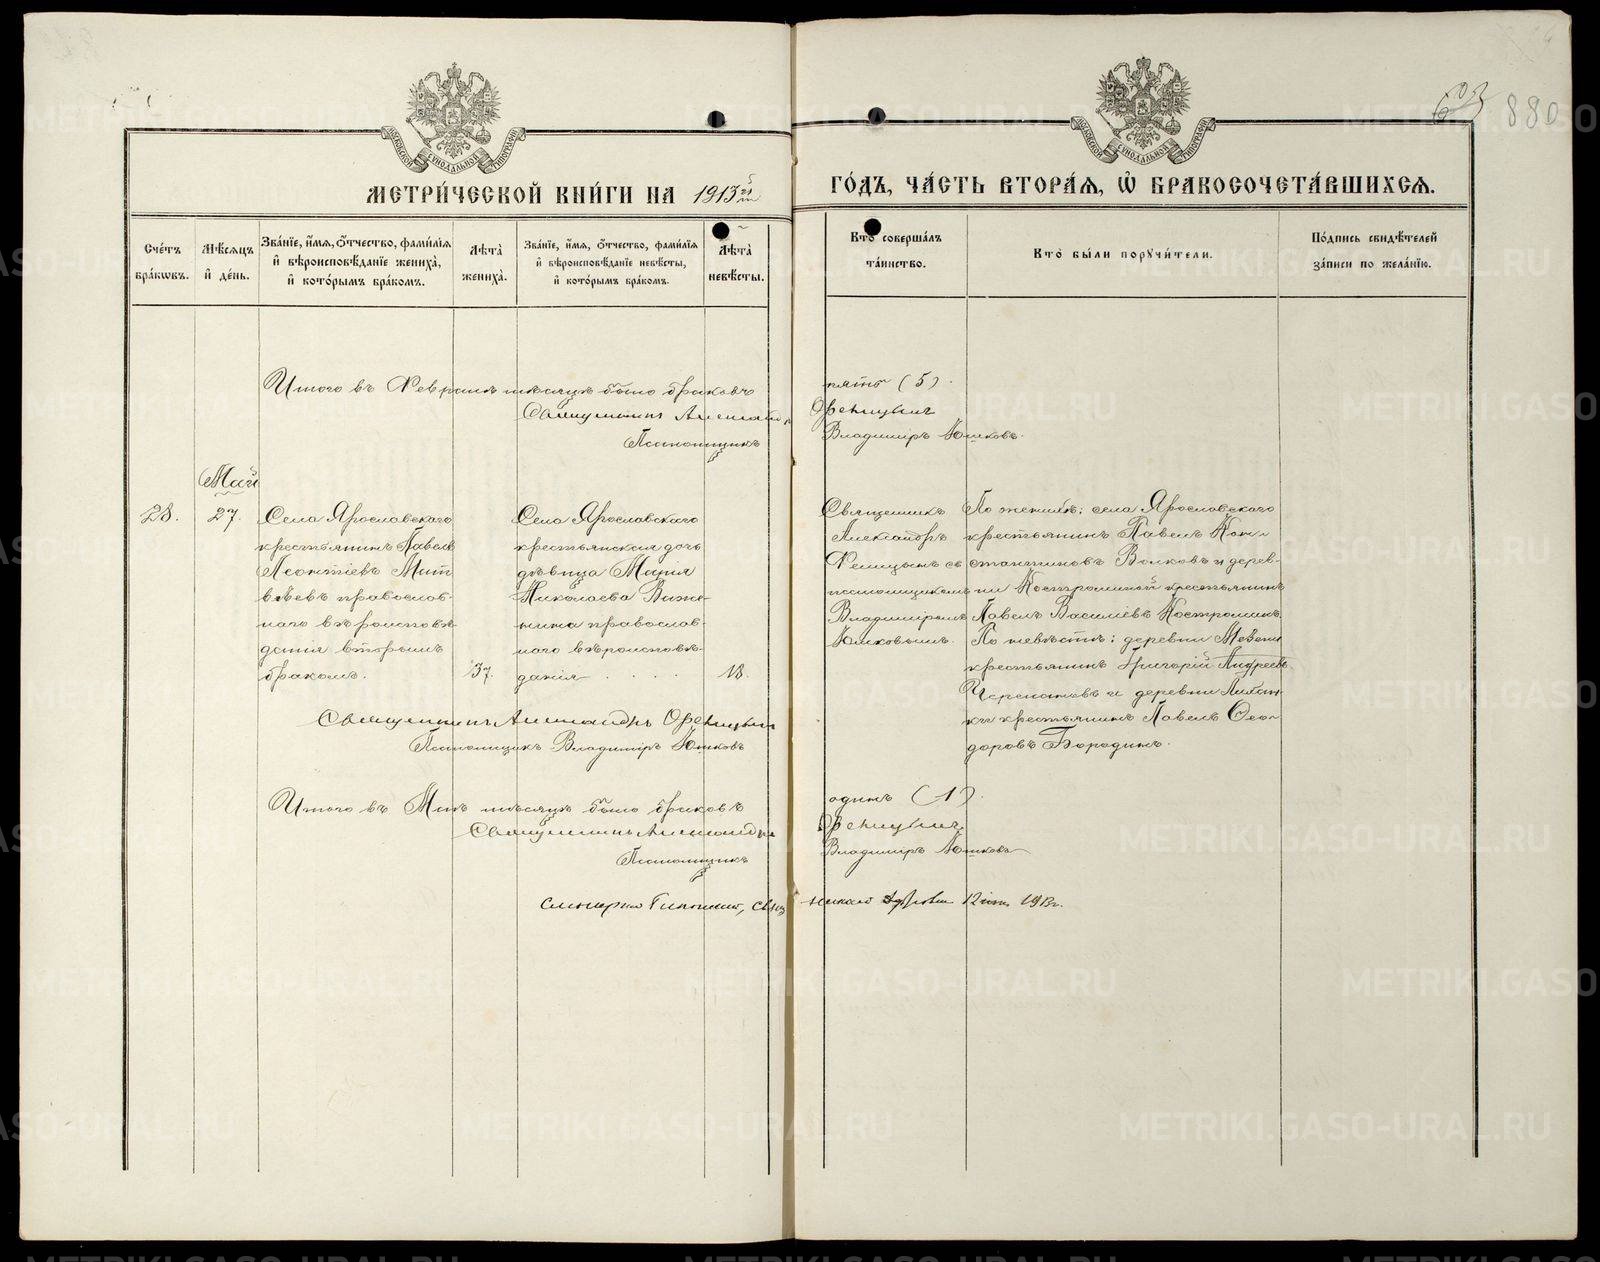 880
МЕТРИ́ЧЕСКОЙ КНИ́ГИ НА 1913 й
ГО́ДЪ, ЧА́СТЬ ВТОРА́Я, Ѡ БРАКОСОЧЕТА́ВШИХСЯ.
Сче́тъ бра́кѡвъ.
Мѣ́сяцъ и҆ де́нь.
Зва́нїе, и҆́мя, ѻ҆́тчество, фами́лїя и҆ вѣроисповѣ́данїе жениха̀, и҆ кото́рымъ бра́комъ.
Лѣ́та жениха̀.
Зва́нїе, и҆́мя, ѻ҆́тчество, фами́лїя и҆ вѣроисповѣ́данїе невѣ́сты, и҆ кото́рымъ бра́комъ.
Лѣ́та невѣ́сты.
Кто̀ соверша́лъ та́инство.
Кто̀ бы́ли порꙋчи́тели.
По́дпись свидѣ́телей за́писи по жела́нїю.
Итого въ Февралѣ мѣсяцѣ было браковъ пять (5).
Священникъ Александръ
Псаломщикъ Владиміръ Юшковъ.
Май
28.
27.
Села Ярославскаго
крестьянинъ Павелъ
Леонтіевъ Мат
вѣевъ православ-
наго вѣроисповѣ-
данія вторымъ
бракомъ.
37.
Села Ярославскаго
крестьянская дочь
дѣвица Марія
Николаева
православ-
наго вѣроисповѣ-
данія
18.
Священникъ
Александръ
съ
псаломщикомъ
Владиміромъ
Юшковымъ.
По женихѣ: села Ярославскаго
крестьянинъ Павелъ Кон-
стантиновъ Волковъ и дерев-
ни Костроминой крестьянинъ
Павелъ Василіевъ Костроминъ.
По невѣстѣ: деревни
крестьянинъ Григорій Андреевъ
Черепановъ и деревни
ки крестьянинъ Павелъ Ѳео-
доровъ Бородинъ.
Священникъ Александръ
Псаломщикъ Владиміръ Юшковъ
Итого въ Маѣ мѣсяцѣ было браковъ одинъ (1).
Священникъ Александръ
Псаломщикъ Владиміръ Юшковъ
12 1913 г.
METRIKI.GASO-URAL.RU